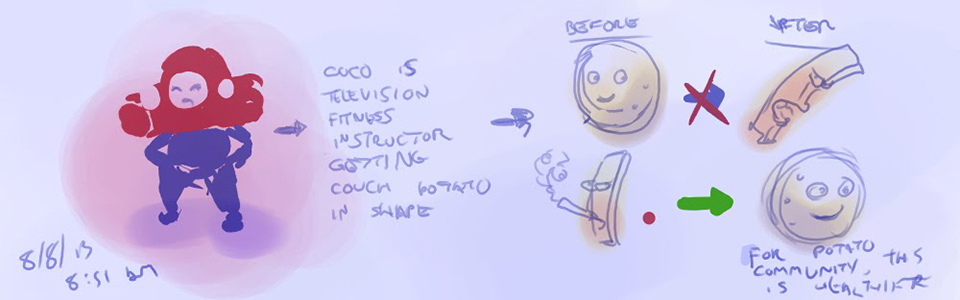 COCO IS
TELEVISION
FITNESS
INSTRUCTOR
GETTING
COUCH POTATO
IN SHAPE
BEFORE
AFTER
FOR POTATO
COMMUNITY, THIS
IS HEALTHIER
8/8/13
8:51 am